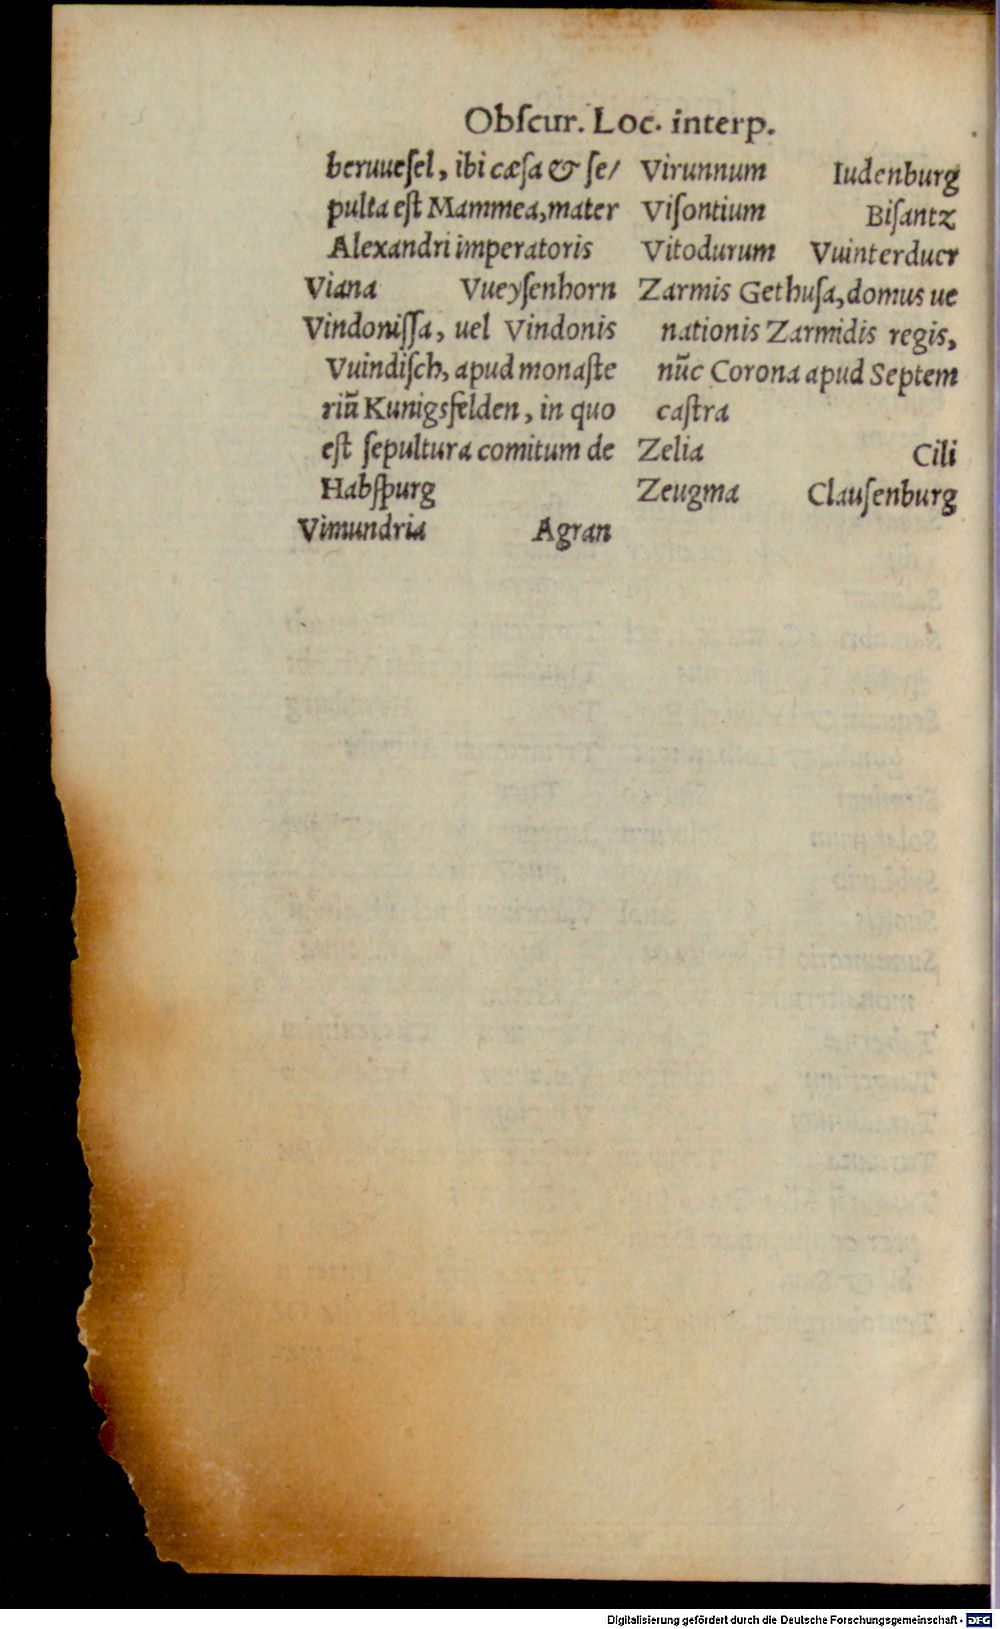 Obſcur. Loc. interp.
beruueſel, ibi cæſa & ſe/
pulta eſt Mammea, mater
Alexandri imperatoris
Viana Vueyſenhorn
Vindoniſſa, uel Vindonis
Vuindiſch, apud monaſte
riũ Kunigsfelden, in quo
eſt ſepultura comitum de
Habſpurg
Vimundria Agran
Virunnum Iudenburg
Viſontium Biſantz
Vitodurum Vuinterduer
Zarmis Gethuſa, domus ue
nationis Zarmidis regis,
nũc Corona apud Septem
caſtra
Zelia Cili
Zeugma Clauſenburg
Digitalisierung gefördert durch die Deutsche Forschungsgemeinschaft - DFG